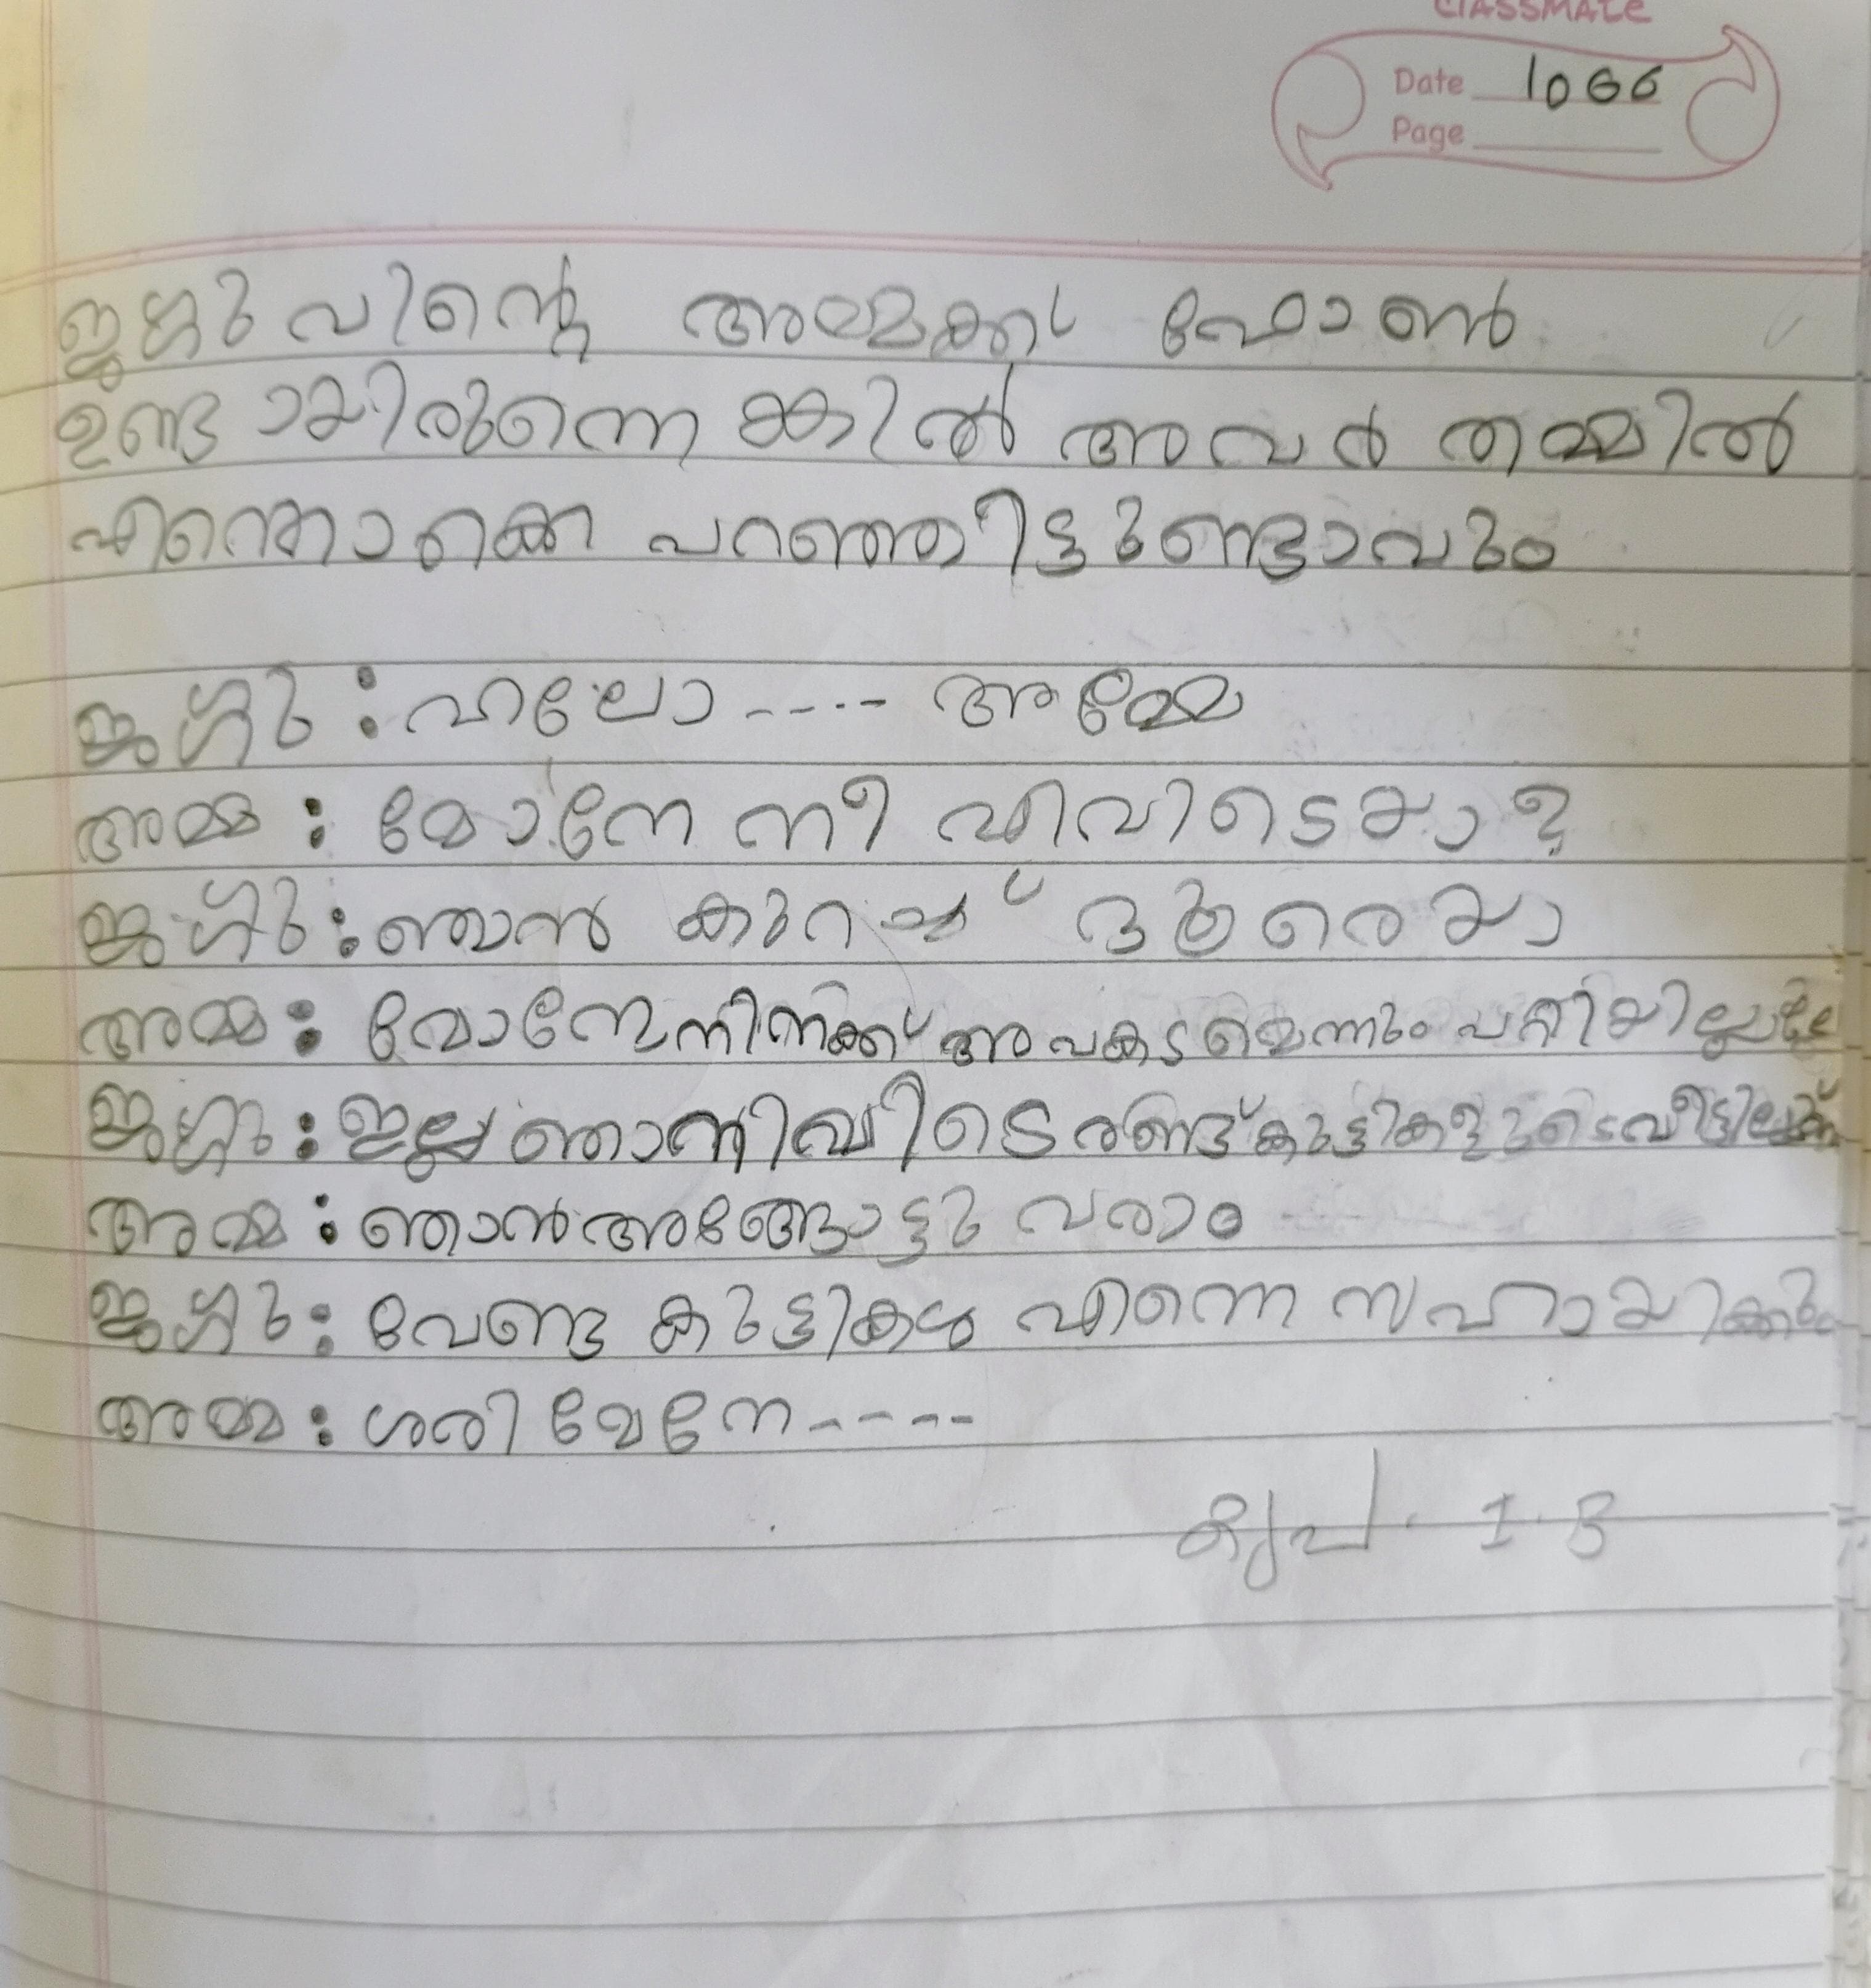 classmate
Date 1066
Page
ജഗ്ഗുവിന്റെ അമ്മക്ക് ഫോൺ
ഉണ്ടായിരുന്നെങ്കിൽ അവർ തമ്മിൽ
എന്തൊക്കെ പറഞ്ഞീട്ടുണ്ടാവും
ജഗ്ഗു : ഹലോ ---- അമ്മേ
അമ്മ : മോനേ നീ എവിടെയാ?
ജഗ്ഗു : ഞാൻ കുറച്ച് ദൂരെയാ
അമ്മ : മോനേ നിനക്ക് അപകടമെന്നും പറ്റിയില്ലല്ലേ
ജഗ്ഗു : ഇല്ല ഞാനിവിടെ രണ്ട് കുട്ടികളുടെ
അമ്മ : ഞാൻ അങ്ങോട്ടു വരാം
ജഗ്ഗു : വേണ്ട കുട്ടികൾ എന്നെ സഹായിക്കും
അമ്മ : ശരി മേനേ ----
1.B